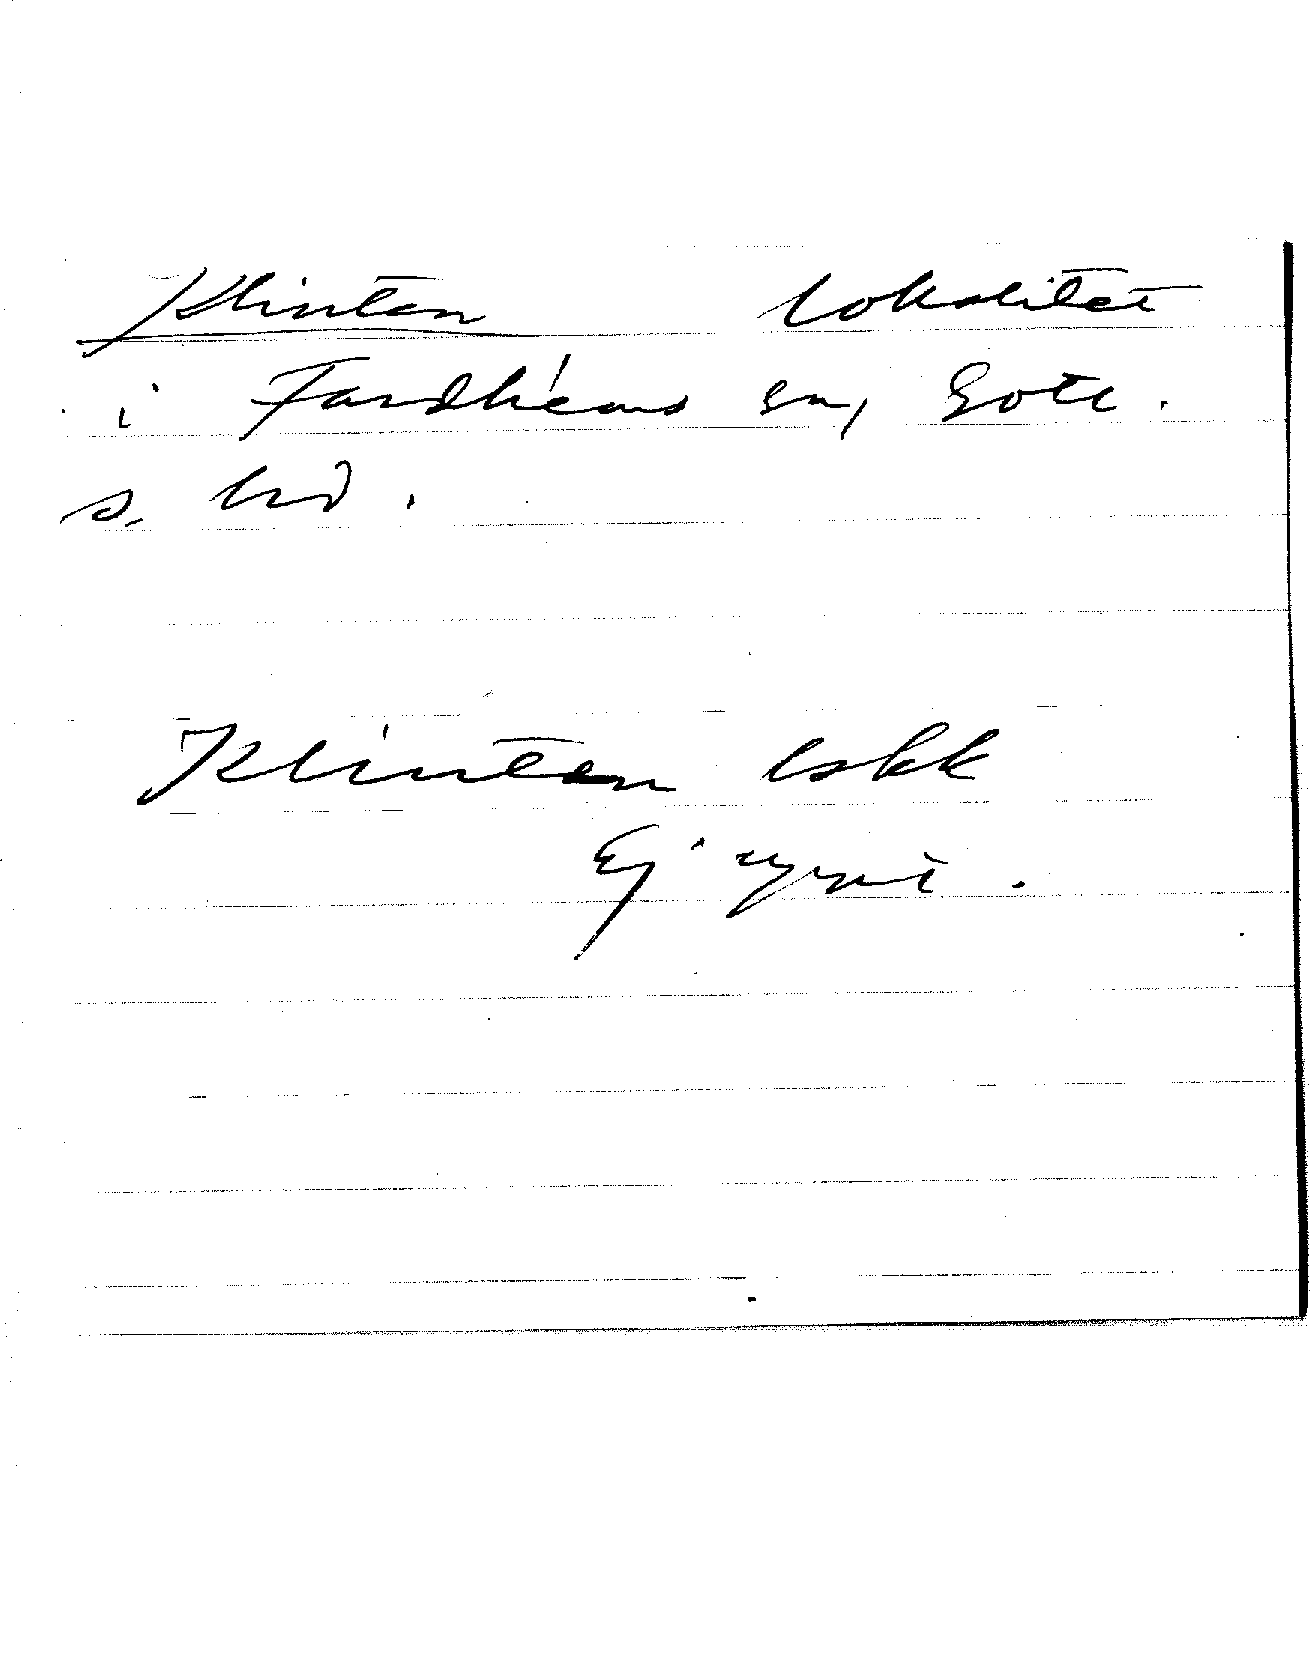 Klinten lokalitet
i Fardhems sn, Gotl.
s. hd.
Klinten lskk
Ej synt.